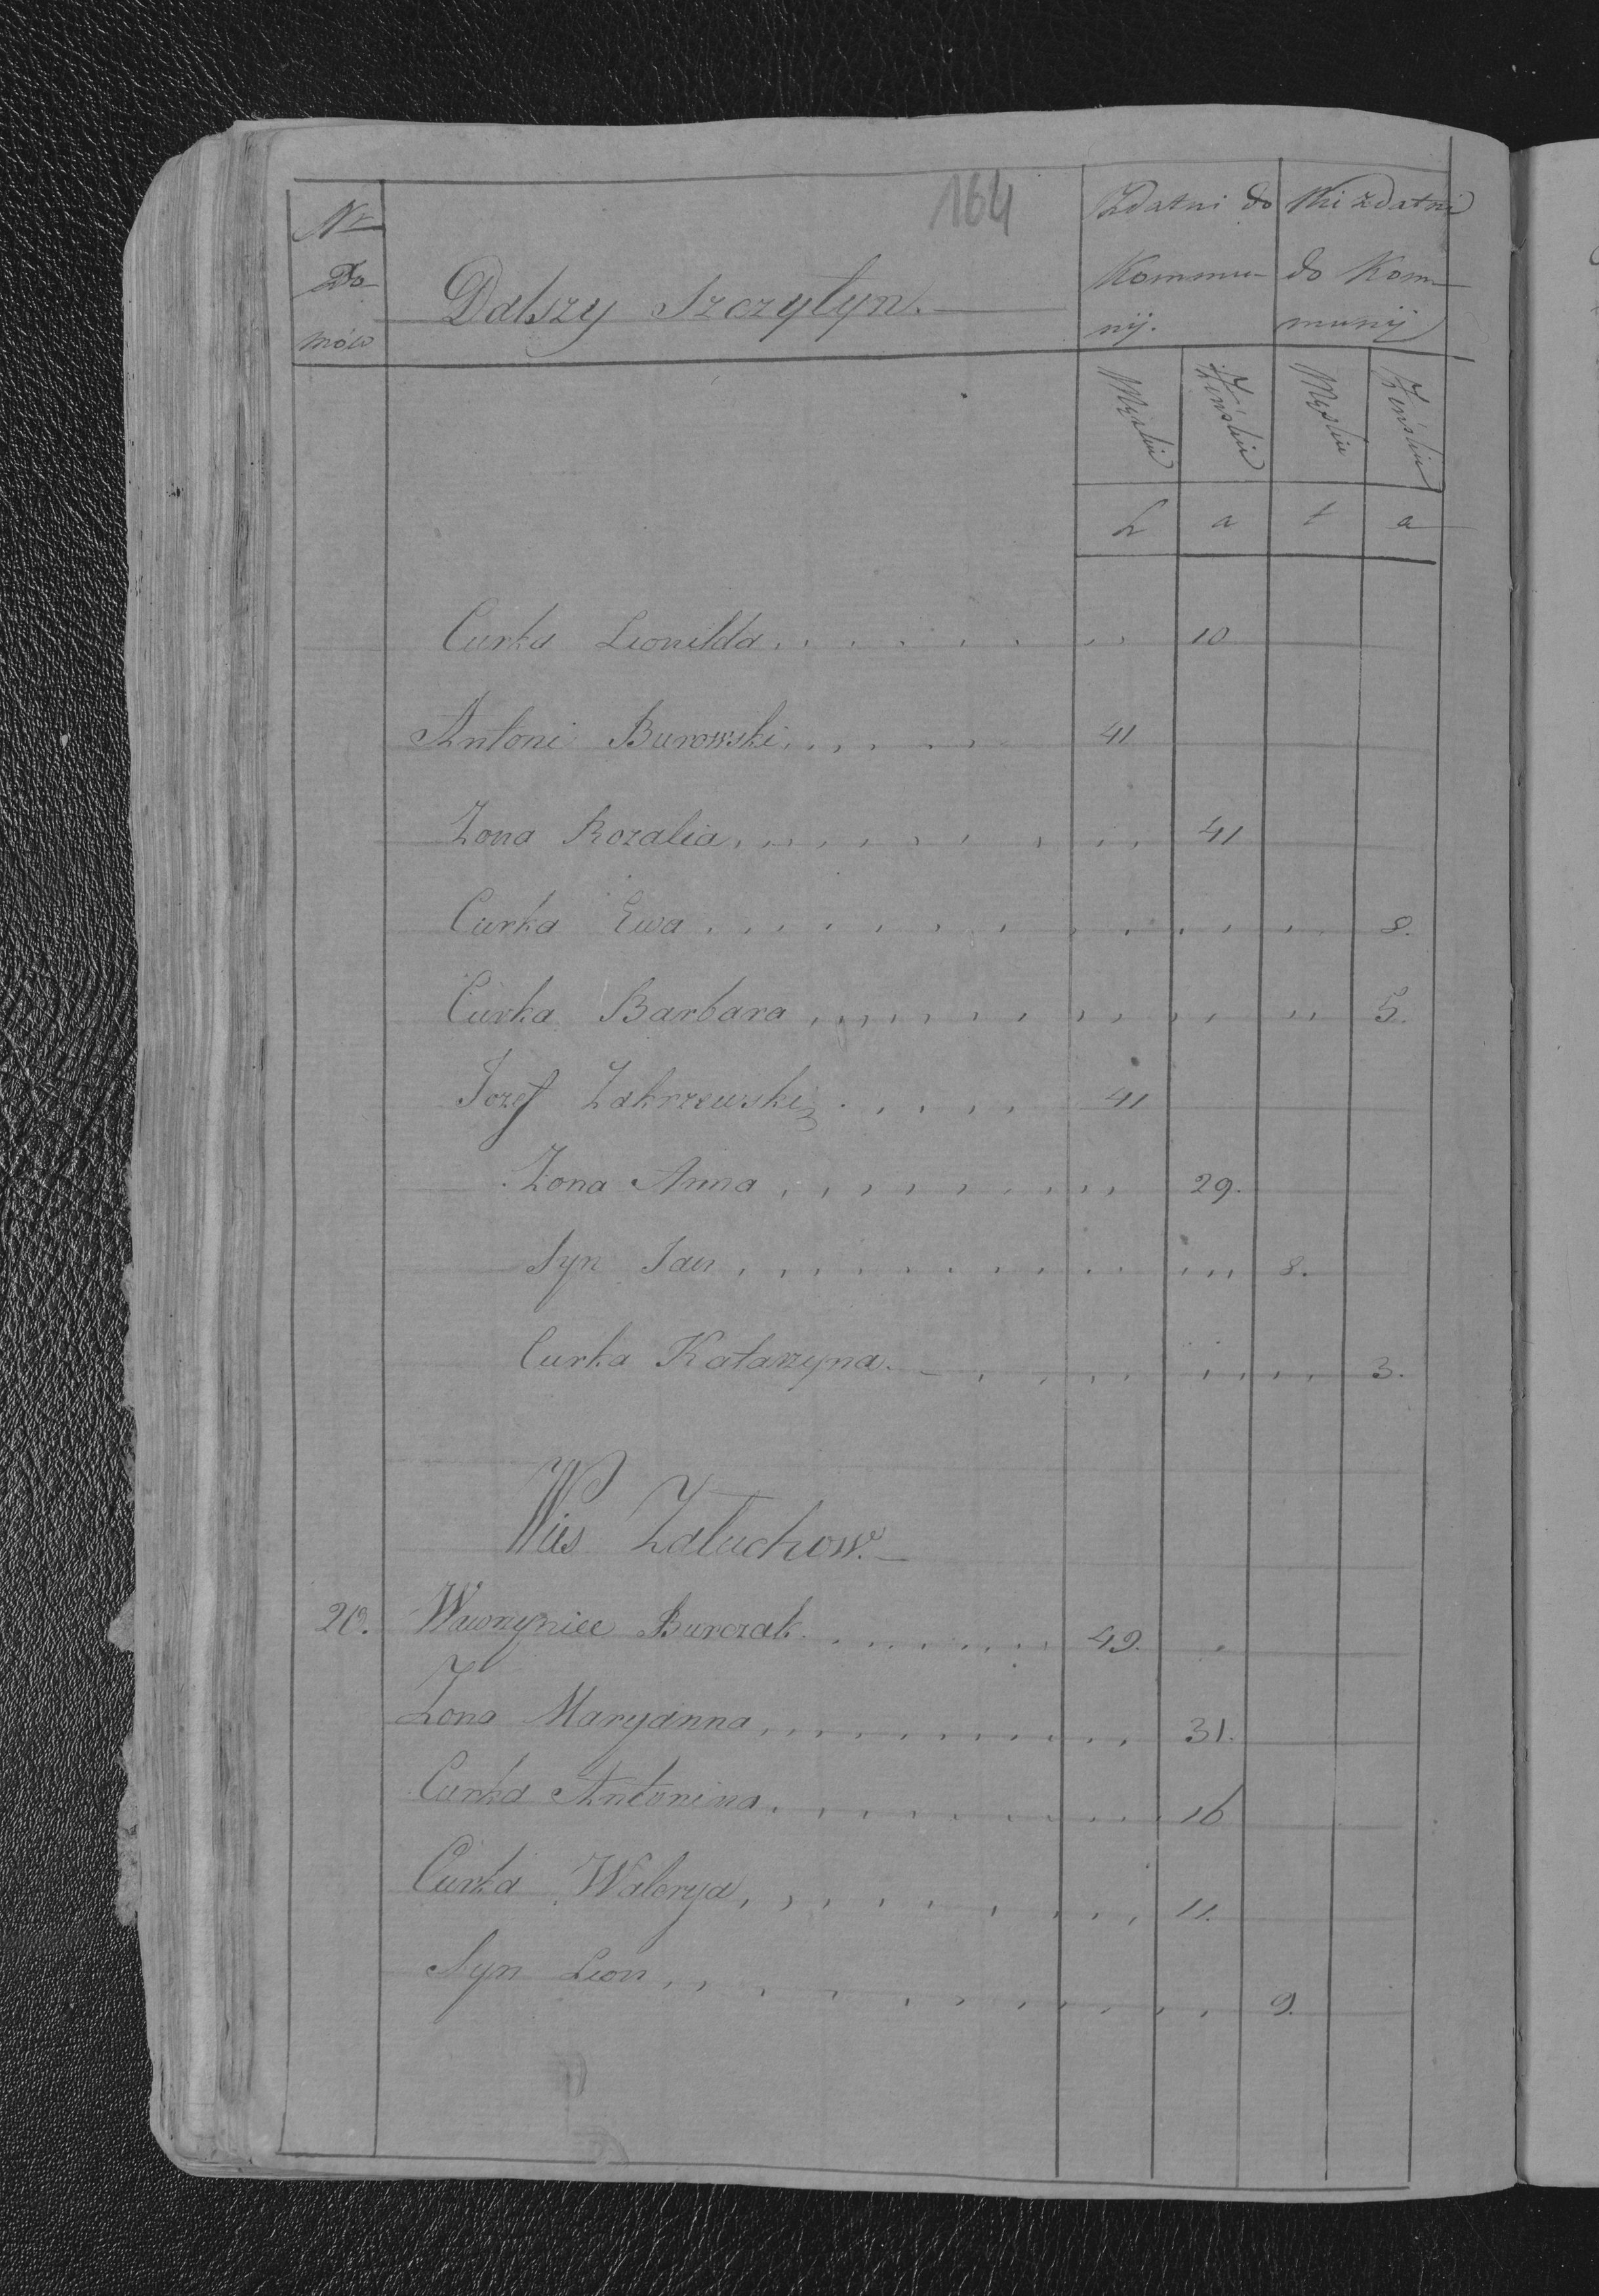 164
Nr Do mów
Dalszy Szczytyn.
Zdatni do Kommunij.
Nie zdatni do Kommunij
Męskie Żeńskie Męskie Żeńskie
L a t a
Curka Leonilda 10
Antoni Burowski 41
Zona Rozalia 41
Curka Ewa 8.
Curka Barbara 5.
Jozef Zakrzewski 41
Zona Anna 29.
Syn Jan 8.
Curka Katarzyna. 3.
Wies Zaluchow.
20. Wawrzyniec Burczak 49.
Zona Maryanna 31.
Curka Antonina 16
Curka Walerya 11.
Syn Leon 9.